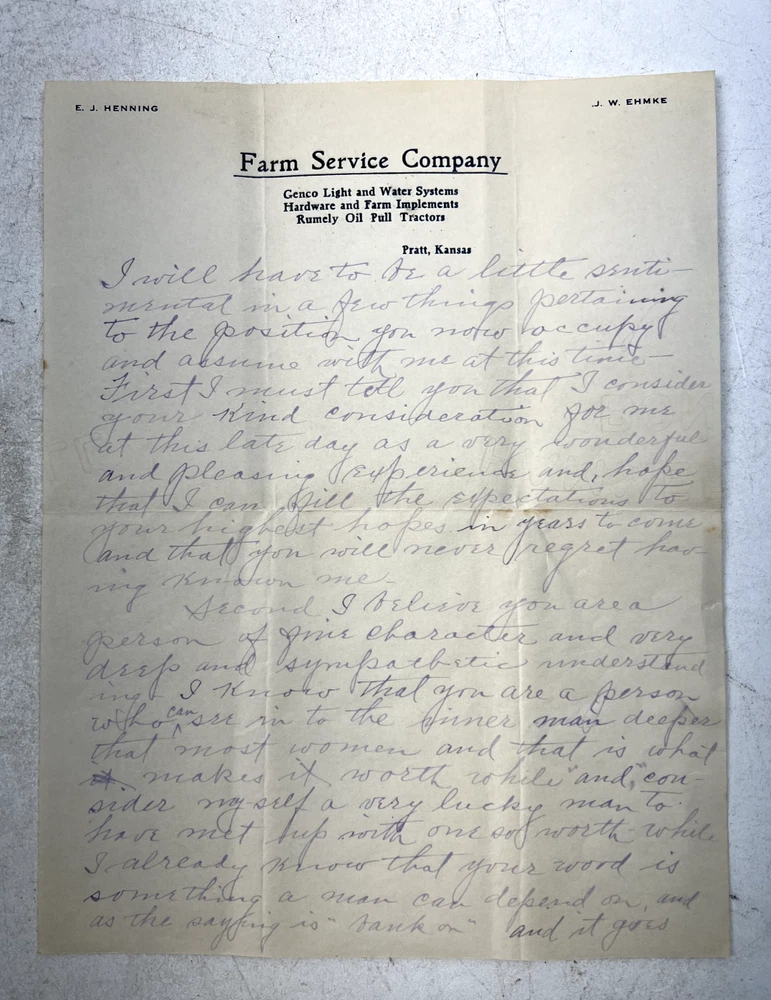 E. J. HENNING
J. W. EHMKE
Farm Service Company
Genco Light and Water Systems
Hardware and Farm Implements
Rumely Oil Pull Tractors
Pratt, Kansas
I will have to be a little senti-
mental in a few things pertaining
to the position you now occupy
and assume with me at this time
First I must tell you that I consider
your kind consideration for me
at this late day as a very wonderful
and pleasing experience and, hope
that I can fill the expectations to
your highest hopes in years to come
and that you will never regret hav-
ing known me.
Second I believe you are a
person of fine character and very
deep and sympathetic understand
ing I know that you are a person
who can see in to the inner man deeper
that most women and that is what
makes it worth while "and" con-
sider my self a very lucky man to
have met up with one so worth-while
I already know that your word is
something a man can depend on, and
as the saying is "bank on" and it goes